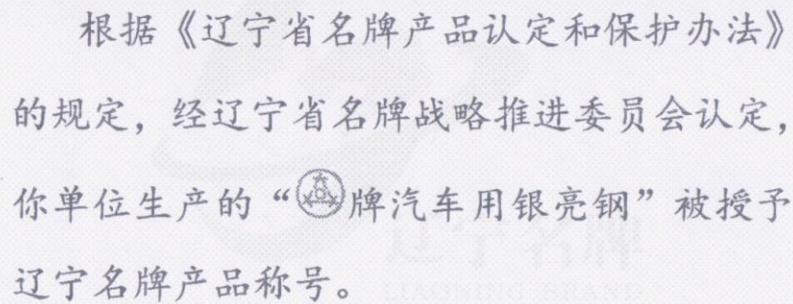 根据《辽宁省名牌产品认定和保护办法》
的规定，经辽宁省名牌战略推进委员会认定，
你单位生产的“牌汽车用银亮钢”被授予
辽宁名牌产品称号。
辽宁名牌
LIAONING BRAND